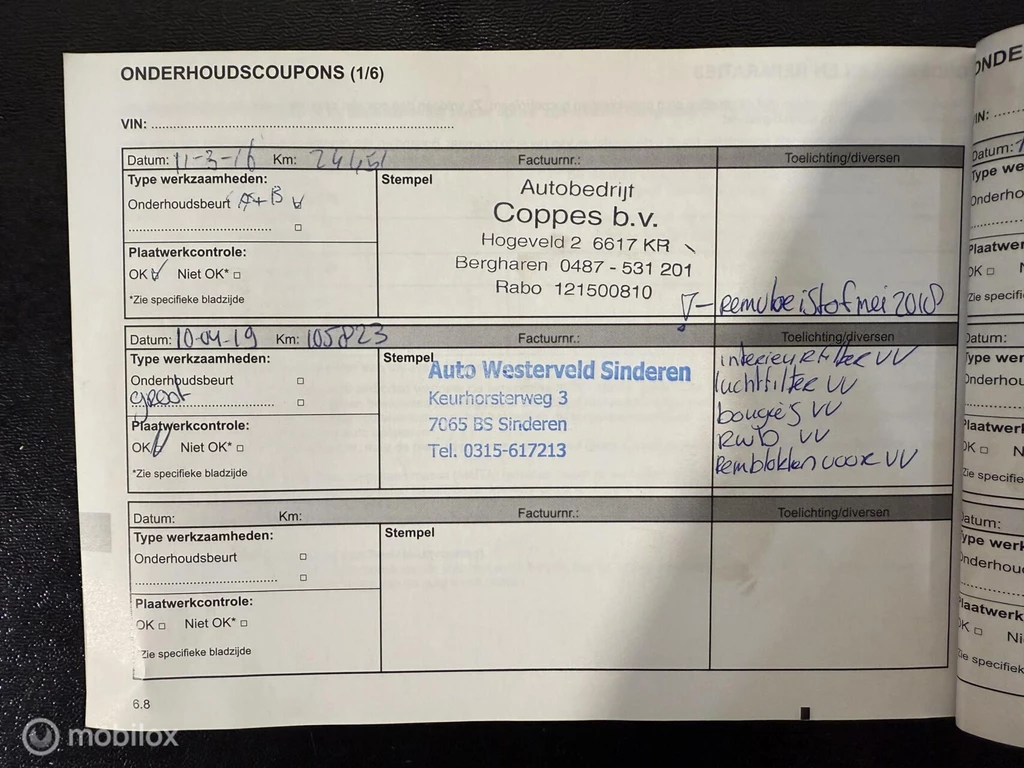 ONDERHOUDSCOUPONS (1/6)
VIN: ....................
Datum: 11-3-16 Km: 24451 Factuurnr.: Toelichting/diversen
Type werkzaamheden: Stempel
Onderhoudsbeurt A+B
Autobedrijf
Coppes b.v.
Hogeveld 2 6617 KR
Bergharen 0487 - 531 201
Rabo 121500810
Plaatwerkcontrole:
OK Niet OK*
*Zie specifieke bladzijde
mei 2018
Datum: 10-04-19 Km: 105823 Factuurnr.: Toelichting/diversen
Type werkzaamheden: Stempel
Onderhoudsbeurt
groot
Auto Westerveld Sinderen
Keurhorsterweg 3
7065 BS Sinderen
Tel. 0315-617213
Plaatwerkcontrole:
OK Niet OK*
*Zie specifieke bladzijde
interieurfilter VV
luchtfilter VV
bougies VV
RWB VV
Remblokken voor VV
Datum: Km: Factuurnr.: Toelichting/diversen
Type werkzaamheden: Stempel
Onderhoudsbeurt
Plaatwerkcontrole:
OK Niet OK*
*Zie specifieke bladzijde
6.8
mobilox
ONDE
IN:
Datum:
Type we
Onderho
Plaatwer
OK
Zie specifi
Datum:
Type wer
Onderho
Plaatwer
OK N
Zie specifie
Datum:
Type werk
Onderhoud
Plaatwerk
OK Ni
Zie specifiek